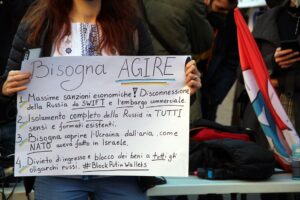 Bisogna AGIRE
1. Massime sanzioni economiche! Disconnessione
della Russia da SWIFT e l'embargo commerciale
2. Isolamento completo della Russia in TUTTI
sensi e formati esistenti.
3. Bisogna coprire l'Ucraina dall'aria, come
NATO aveva fatto in Israele.
4. Divieto di ingresso e blocco dei beni a tutti gli
oligarchi russi. #BlockPutinWallets